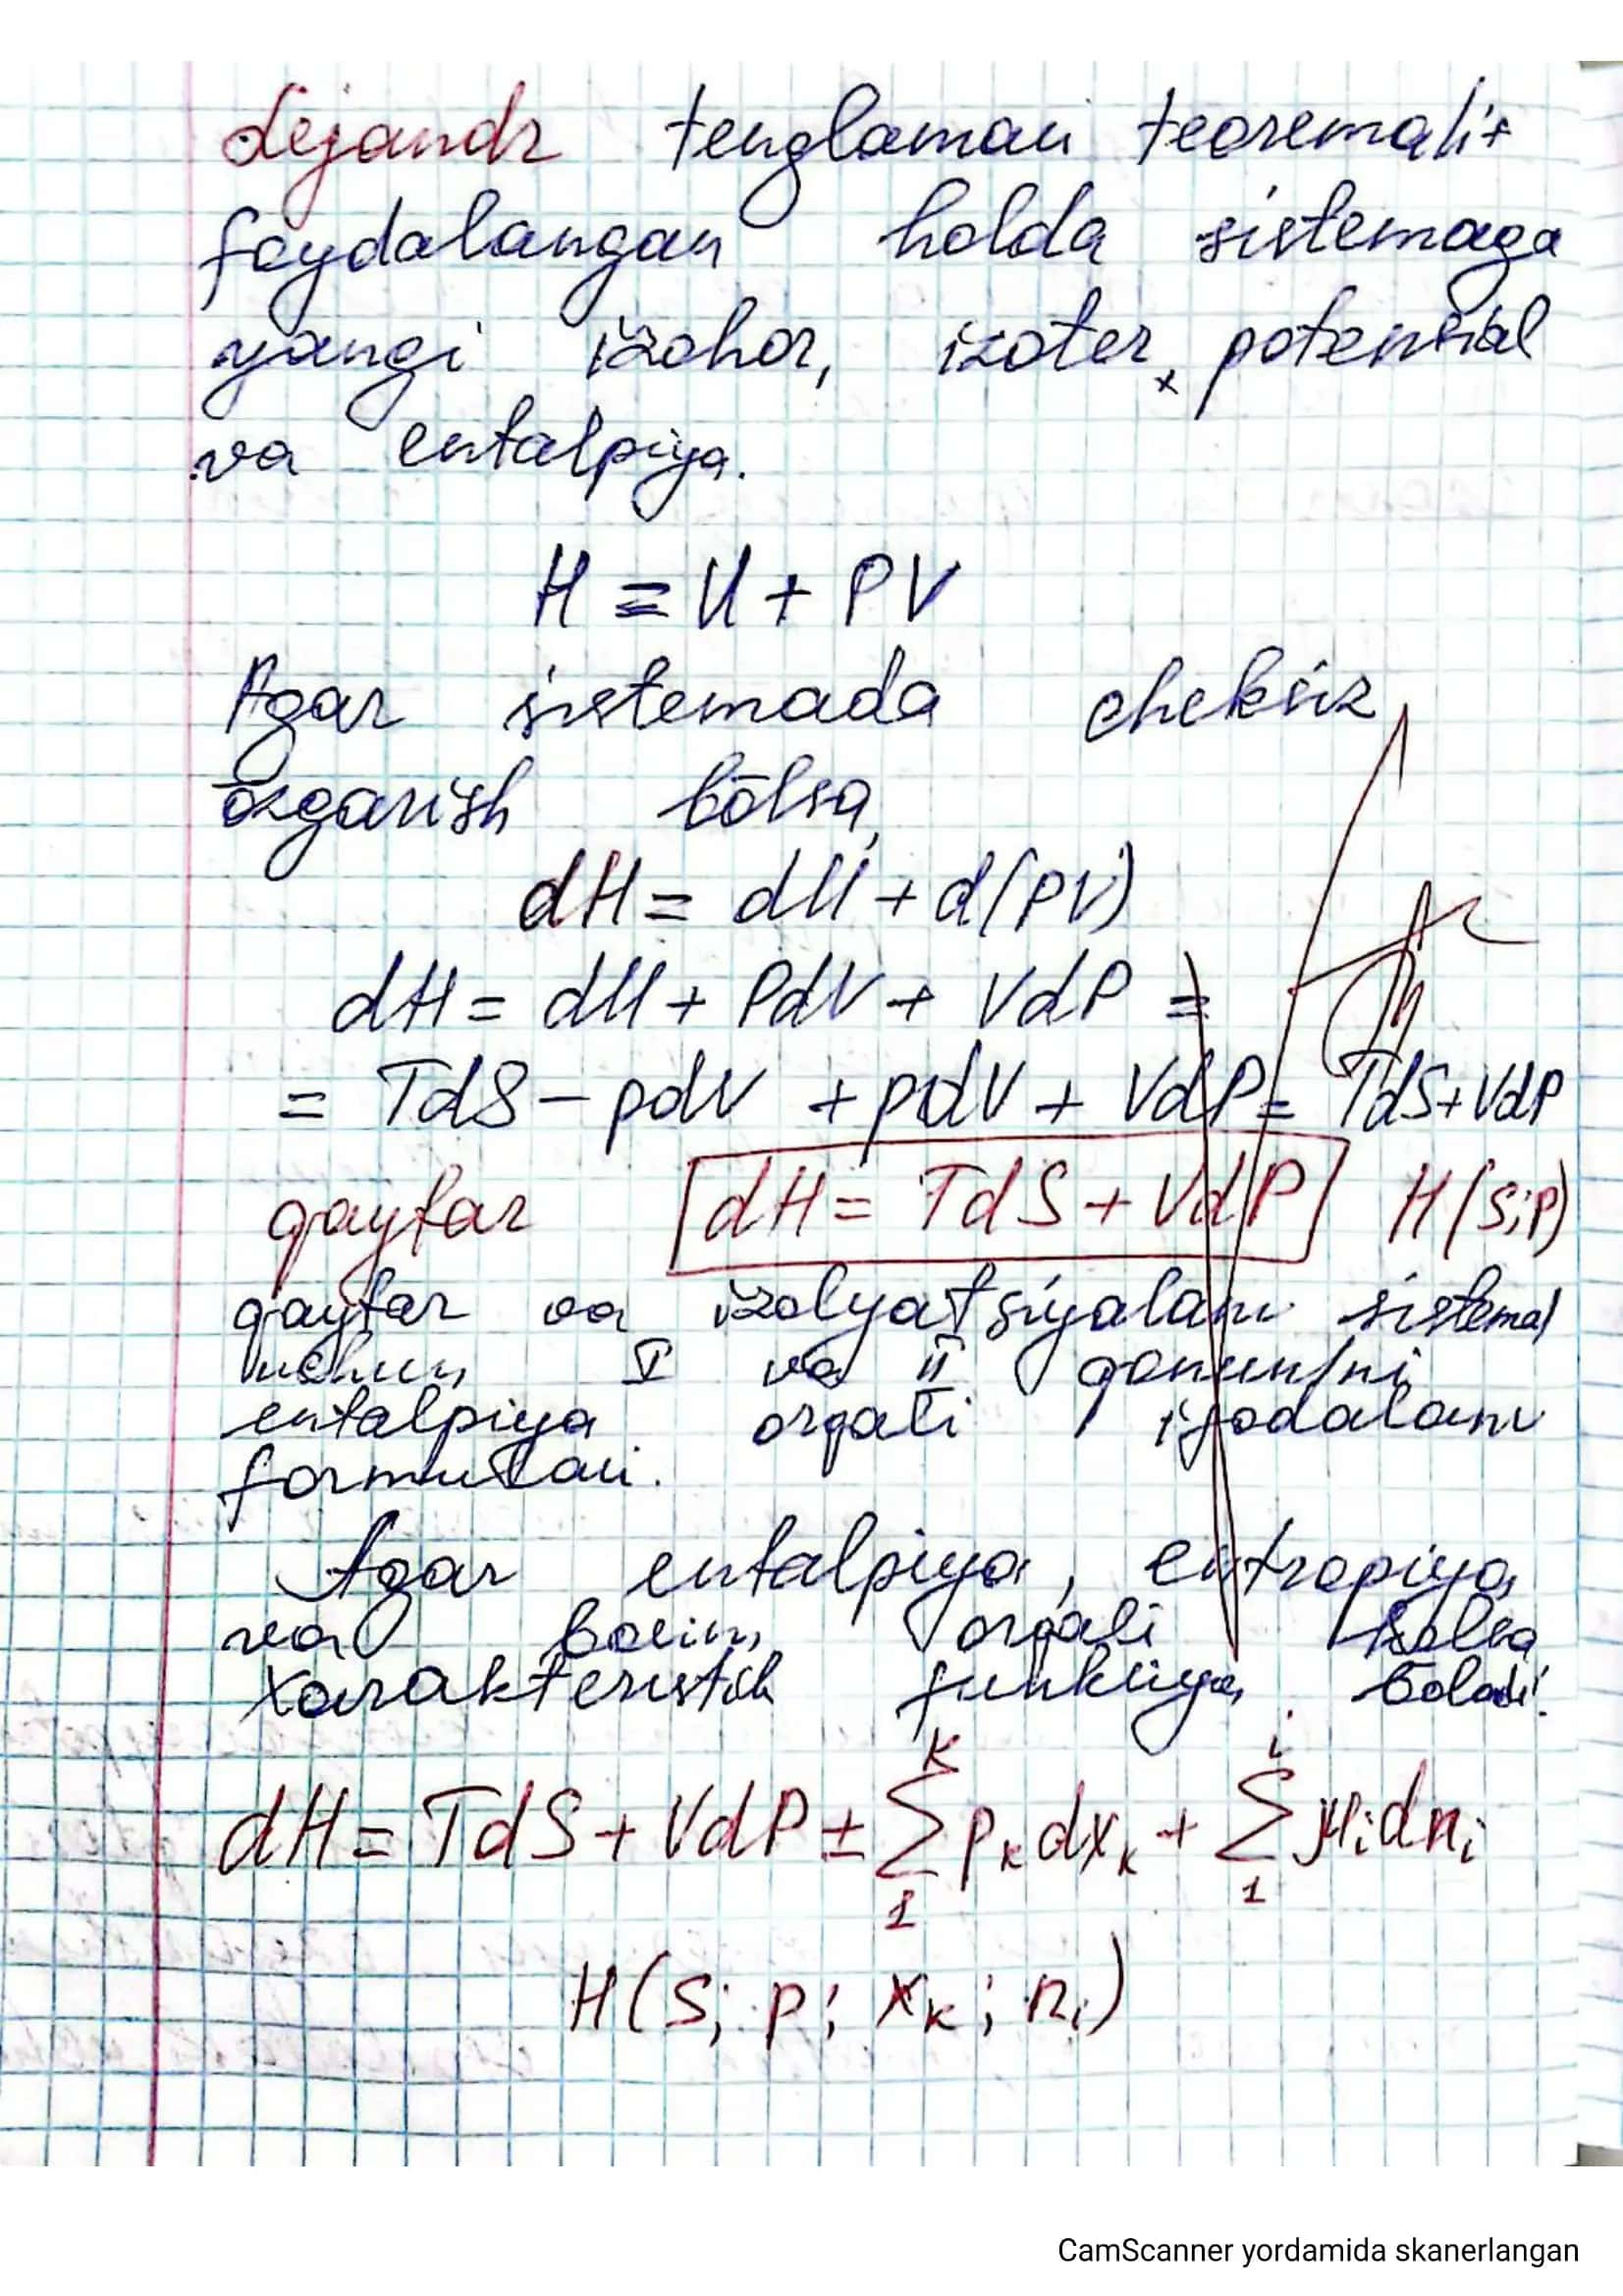 Lejandr tenglamasi teoremasi
foydalangan holda sistemaga
yangi izohor, izoter potensial
va entalpiya.
H = U + PV
Agar sistemada cheksiz
ōzgarish bōlsa,
dH = dU + d(PV)
dH = dU + PdV + VdP =
= TdS - pdV + pdV + VdP = TdS + VdP
qaytar dH = TdS + VdP H(S;P)
qaytar va izolyatsiyalani sistema
uchun I va II qonun/ni
entalpiya orqali ifodalani
formulasi.
Agar entalpiya, entropiya
va bosim orqali bolsa
xarakteristik funksiya boladi.
dH = TdS + VdP ± Σ₁ᴷ pₖdxₖ + Σ₁ⁱ μᵢdnᵢ
H(S; P; xₖ; nᵢ)
CamScanner yordamida skanerlangan